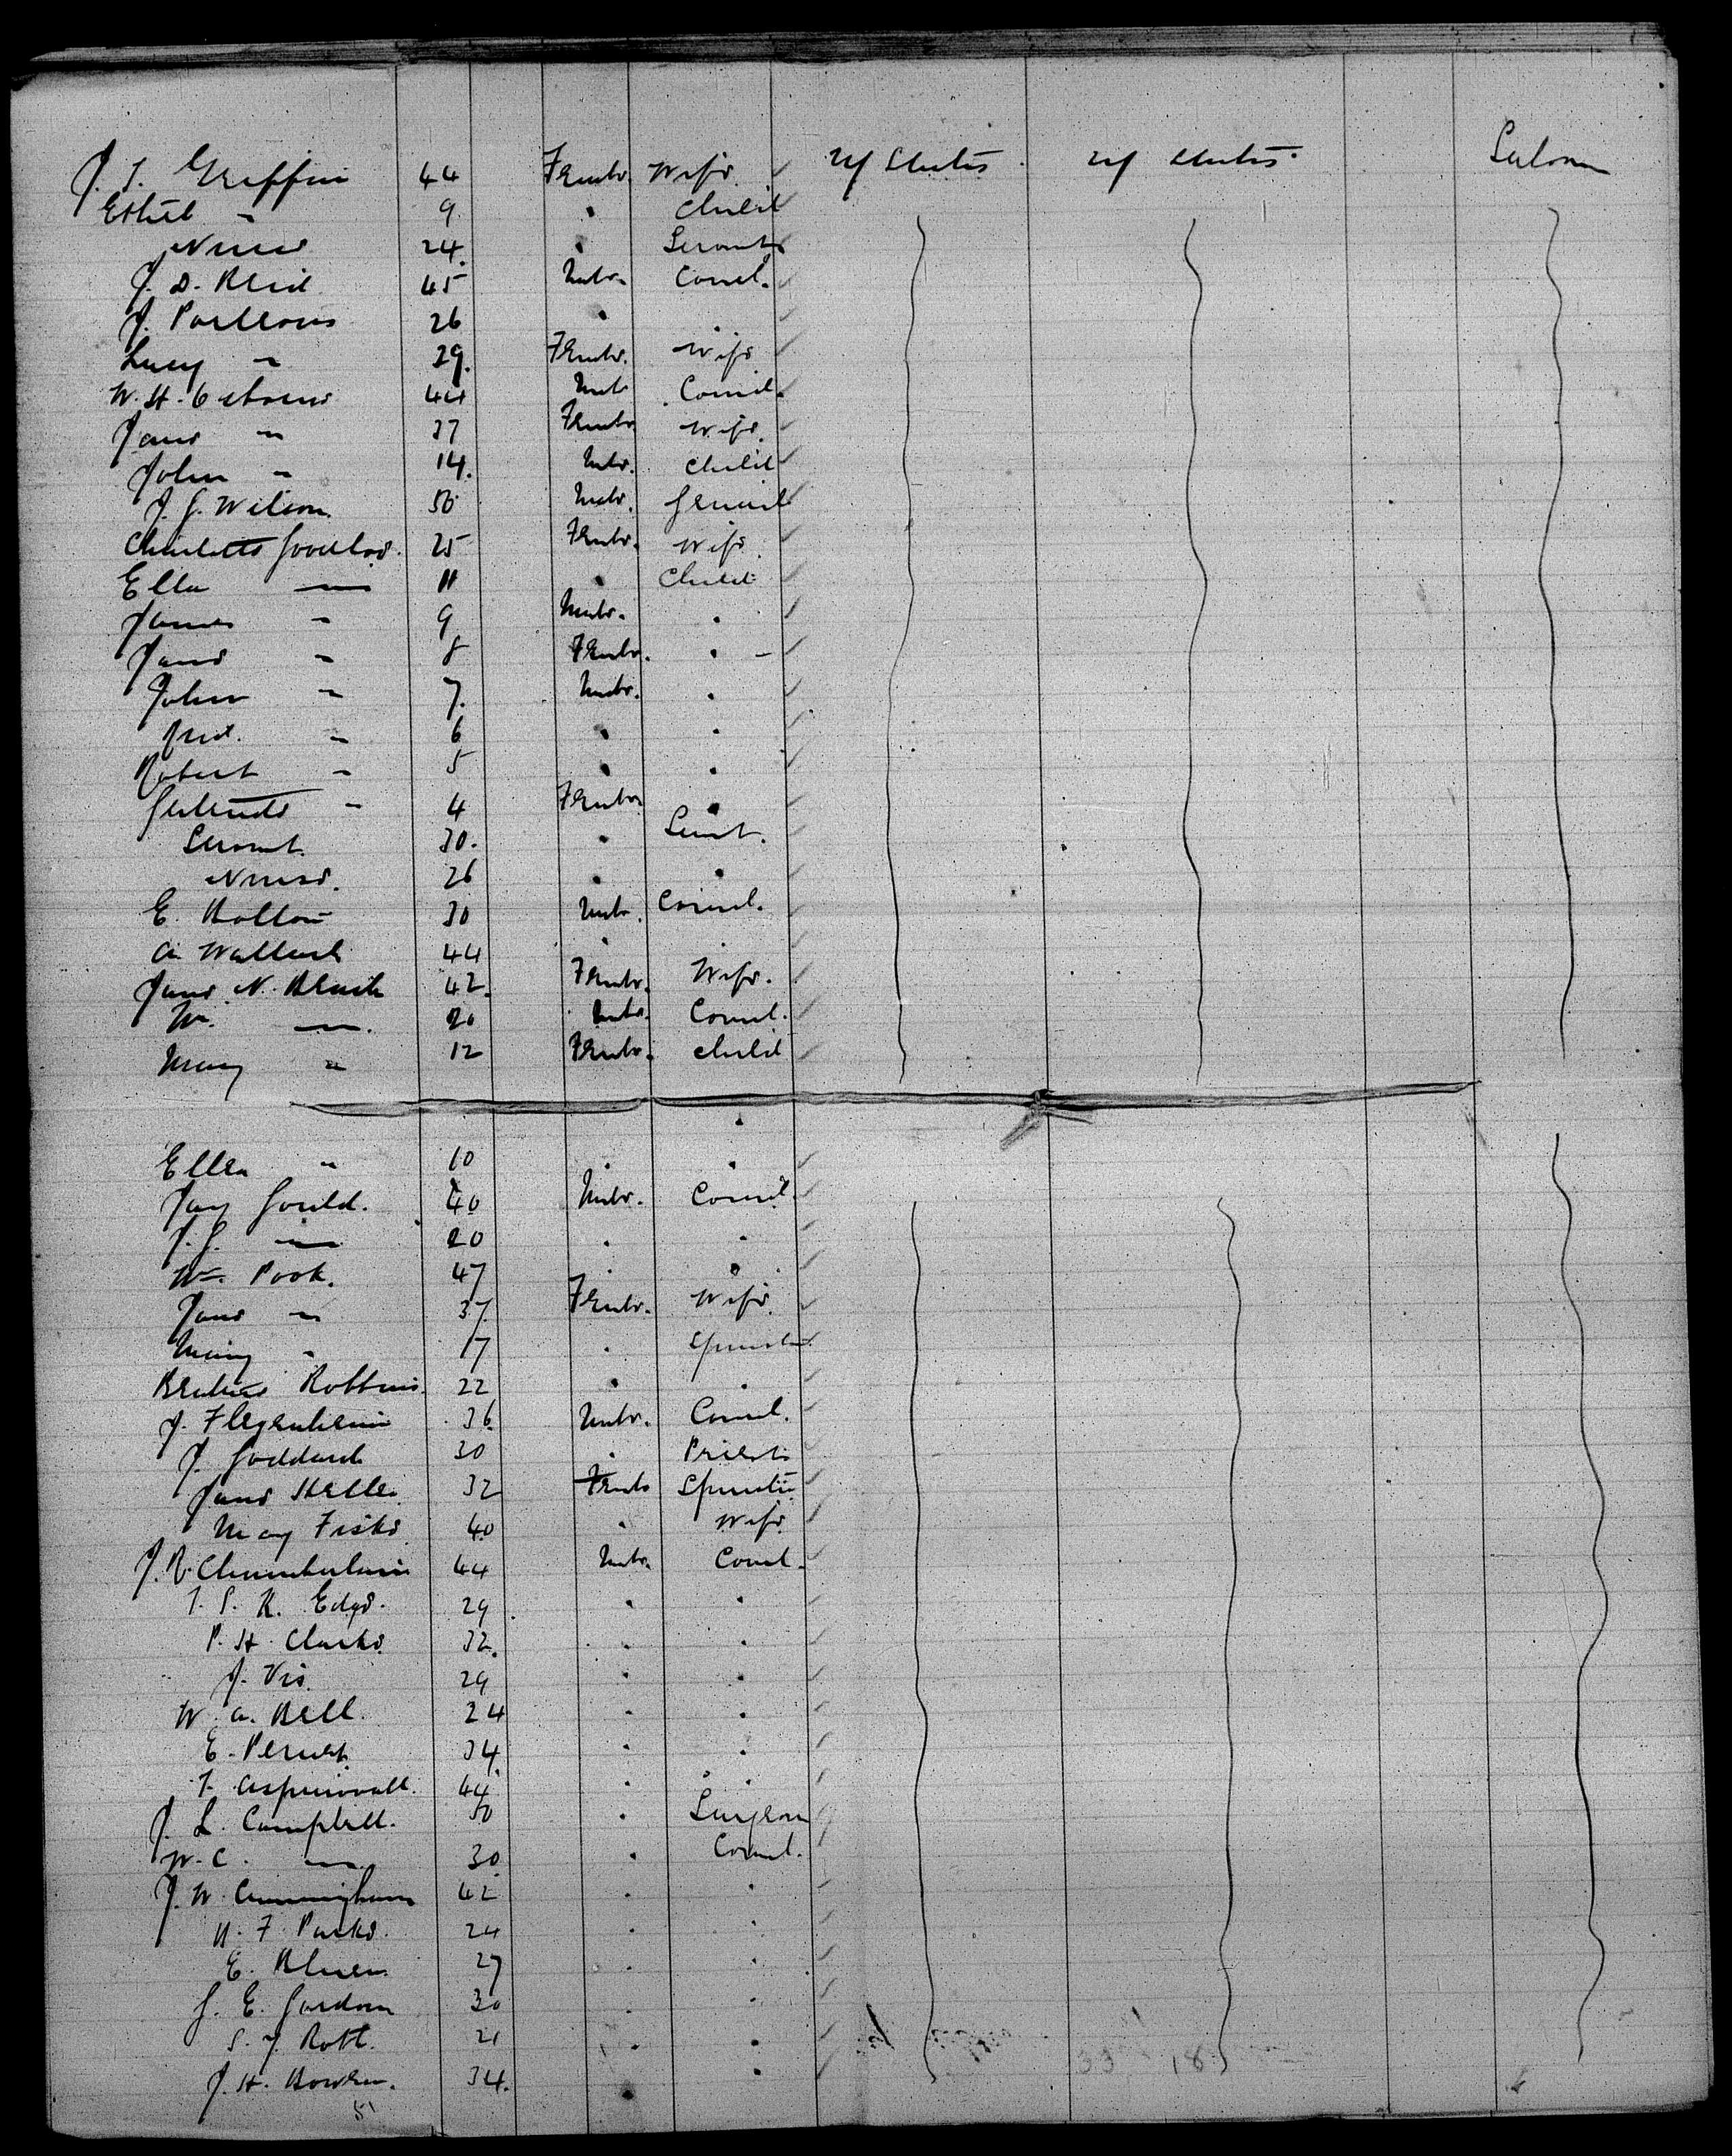 J. T. Griffin 44 Female Wife U/ States U/ States Saloon
Ethel " 9 " Child
Nurse 24 " Servant
J. D. Reid 45 Male Coml.
J. 26 " "
Lucy " 29 Female Wife
W. H. 44 Male Coml.
Jane " 37 Female Wife
John " 14 Male Child
J. G. Wilson 50 Male General
Charlotte 25 Female Wife
Ella " 11 " Child
James " 9 Male "
Jane " 8 Female " -
John " 7 Male "
Fred. " 6 " "
Robert " 5 " "
Gertrude " 4 Female "
Servant 30 " Servt.
Nurse 26 " "
E. 30 Male Coml.
A. Wallach 44 " "
Jane N. 42 Female Wife
Wm. " 20 Male Coml.
Mary " 12 Female Child
Ellen " 10 " "
Jay Gould 40 Male Coml.
J. G. " 20 " "
Wm. Pook. 47 " "
Jane " 37 Female Wife
Mary " 17 " Spinster
Robbins 22 " "
J. 36 Male Coml.
J. Goddard 30 " Priest
Jane 32 Female Spinster
May Fiske 40 " Wife
J. R. Chamberlain 44 Male Coml.
T. S. R. Edge. 29 " "
P. H. Clarke 32 " "
J. Vis. 29 " "
W. A. Bell. 24 " "
E. 34 " "
T. Aspinwall. 44 " "
J. L. Campbell. 50 " Surgeon
W. C. " 30 " Coml.
J. W. Cunningham 42 " "
H. F. Parke. 24 " "
E. 27 " "
G. E. Gordon 30 " "
S. J. 21 " "
J. H. Bowen. 34. " "
51
33 18